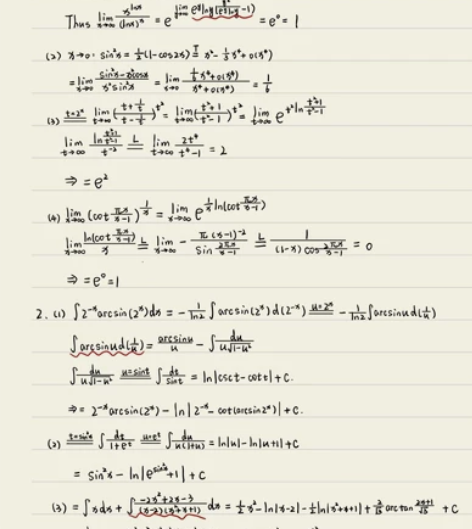 Thus lim_{x→∞} x^{lnx}/(lnx)^x = e^{lim_{x→∞} …} = e^0 = 1
(2) x→0. sin²x = ½(1-cos2x) = x² - ⅓x⁴ + o(x⁴)
= lim_{x→0} (sin²x - x²cosx)/(x²sin²x) = lim_{x→0} (⅙x⁴ + o(x⁴))/(x⁴ + o(x⁴)) = 1/6
(3) lim_{t→∞} ((t + 1/t)/(t - 1/t))^{t²} = lim_{t→∞} ((t²+1)/(t²-1))^{t²} = lim_{t→∞} e^{t² ln (t²+1)/(t²-1)}
lim_{t→∞} (ln (t²+1)/(t²-1))/t^{-2} =^L lim_{t→∞} 2t⁴/(t⁴-1) = 2
⇒ = e²
(4) lim_{x→∞} (cot πx/(x-1))^{1/x} = lim_{x→∞} e^{(1/x) ln(cot πx/(x-1))}
lim_{x→∞} ln(cot πx/(x-1))/x =^L lim_{x→∞} - π(x-1)^{-2}/(sin 2πx/(x-1)) =^L 1/((1-x) cos 2πx/(x-1)) = 0
⇒ = e^0 = 1
2. (1) ∫2^{-x} arcsin(2^x)dx = - 1/ln2 ∫arcsin(2^x) d(2^{-x}) =^{u=2^x} - 1/ln2 ∫arcsinu d(1/u)
∫arcsinu d(1/u) = arcsinu/u - ∫ du/(u√(1-u²))
∫ du/(u√(1-u²)) =^{u=sint} ∫ dt/sint = ln|csct - cott| + C.
⇒ = 2^{-x} arcsin(2^x) - ln|2^{-x} - cot(arcsin2^x)| + C.
(2) ∫ dt/(1+e^t) =^{u=e^t} ∫ du/(u(1+u)) = ln|u| - ln|u+1| + C
= sin²x - ln|e^{sin²x} + 1| + C
(3) = ∫xdx + ∫ (-2x²+2x-3)/((x-2)(x²+x+1)) dx = ½x² - ln|x-2| - ½ln|x²+x+1| + arctan (2x+1)/√3 + C